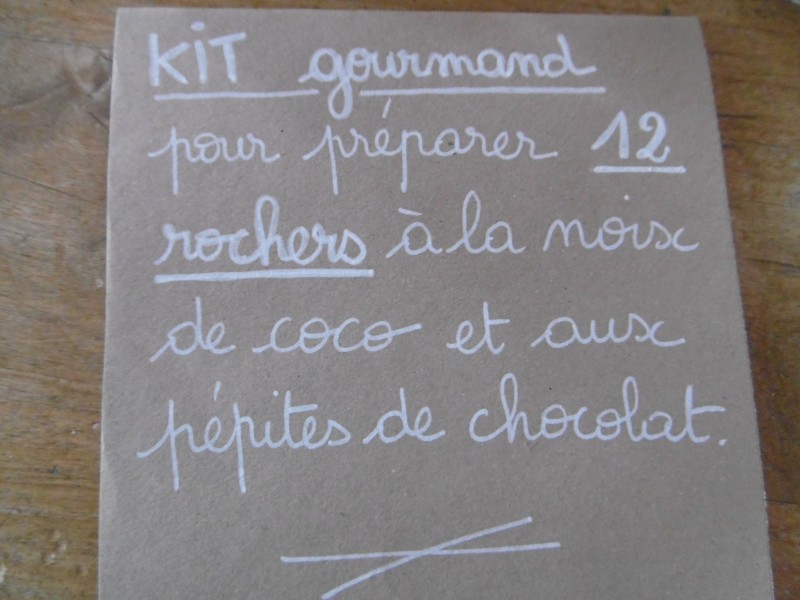 KiT gourmand
pour préparer 12
rochers à la noix
de coco et aux
pépites de chocolat.